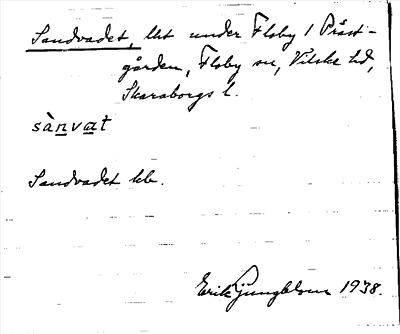 Sandvadet, lht under Floby 1 Präst-
gården, Floby sn, Vilske hd,
Skaraborgs l.
sànvat
Sandvadet kb.
Erik Ljungblom 1938.